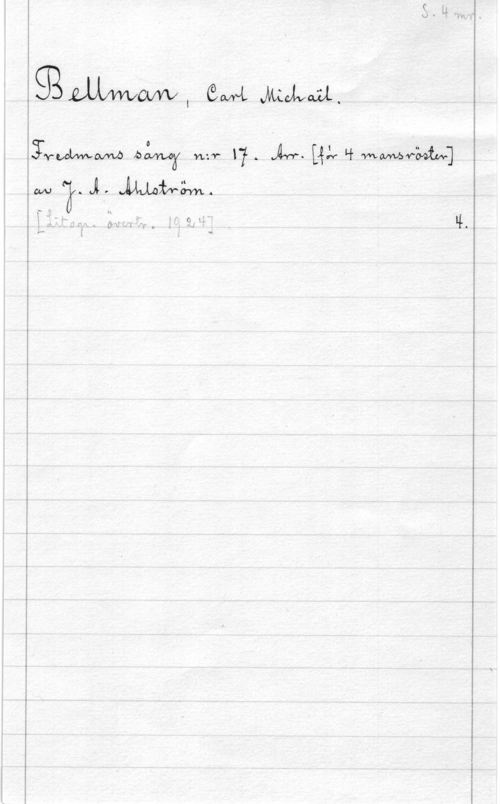 S. 4 mr.
Bellman, Carl Michaël.
Fredmans sång n:r 17. Arr. [för 4 mansröster]
av J. A. Ahlström.
[Litogr. övertr. 1924] 4.